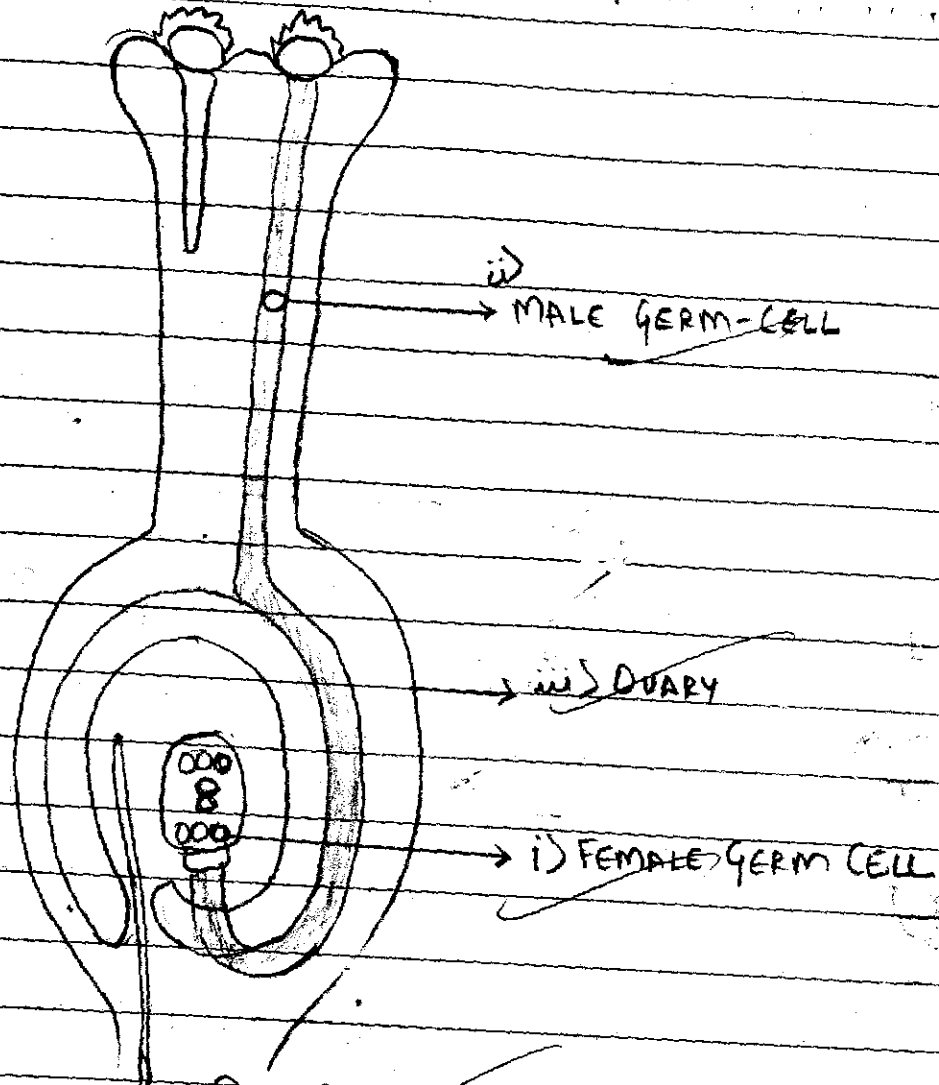 ii)
MALE GERM-CELL
iii) OVARY
i) FEMALE GERM CELL